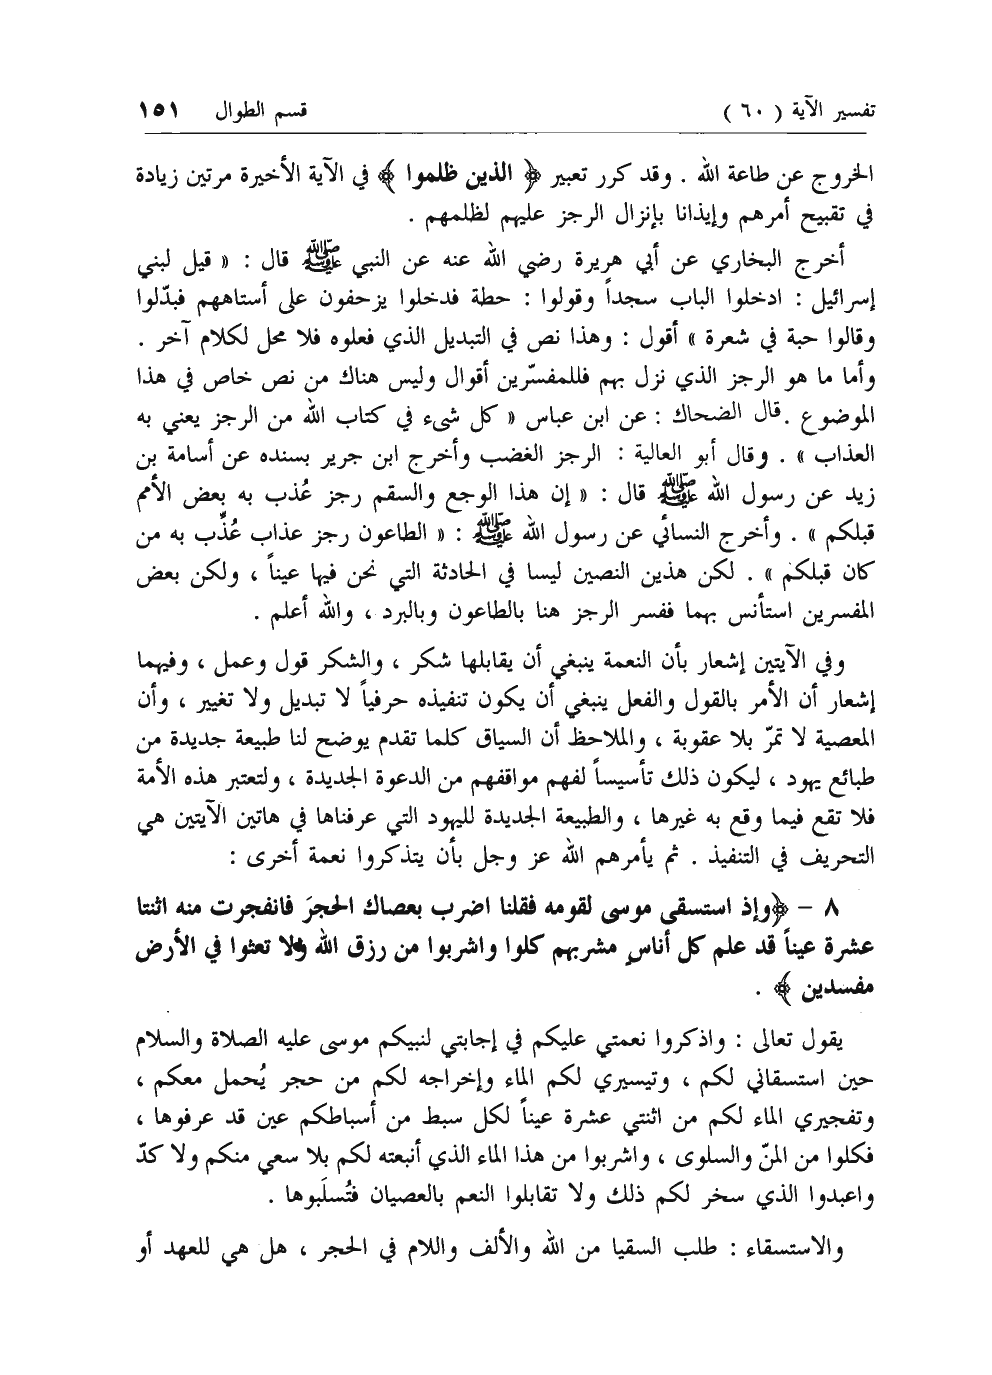 تفسير الآية ( ٦٠ ) قسم الطوال ١٥١
الخروج عن طاعة الله . وقد كرر تعبير ﴿ الذين ظلموا ﴾ في الآية الأخيرة مرتين زيادة
في تقبيح أمرهم وإيذانا بإنزال الرجز عليهم لظلمهم .
أخرج البخاري عن أبي هريرة رضي الله عنه عن النبي ﷺ قال : « قيل لبني
إسرائيل : ادخلوا الباب سجداً وقولوا : حطة فدخلوا يزحفون على أستاههم فبدّلوا
وقالوا حبة في شعرة » أقول : وهذا نص في التبديل الذي فعلوه فلا محل لكلام آخر .
وأما ما هو الرجز الذي نزل بهم فللمفسّرين أقوال وليس هناك من نص خاص في هذا
الموضوع . قال الضحاك : عن ابن عباس « كل شىء في كتاب الله من الرجز يعني به
العذاب » . وقال أبو العالية : الرجز الغضب وأخرج ابن جرير بسنده عن أسامة بن
زيد عن رسول الله ﷺ قال : « إن هذا الوجع والسقم رجز عُذب به بعض الأمم
قبلكم » . وأخرج النسائي عن رسول الله ﷺ : « الطاعون رجز عذاب عُذِّب به من
كان قبلكم » . لكن هذين النصين ليسا في الحادثة التي نحن فيها عيناً ، ولكن بعض
المفسرين استأنس بهما ففسر الرجز هنا بالطاعون وبالبرد ، والله أعلم .
وفي الآيتين إشعار بأن النعمة ينبغي أن يقابلها شكر ، والشكر قول وعمل ، وفيهما
إشعار أن الأمر بالقول والفعل ينبغي أن يكون تنفيذه حرفياً لا تبديل ولا تغيير ، وأن
المعصية لا تمرّ بلا عقوبة ، والملاحظ أن السياق كلما تقدم يوضح لنا طبيعة جديدة من
طبائع يهود ، ليكون ذلك تأسيساً لفهم مواقفهم من الدعوة الجديدة ، ولتعتبر هذه الأمة
فلا تقع فيما وقع به غيرها ، والطبيعة الجديدة لليهود التي عرفناها في هاتين الآيتين هي
التحريف في التنفيذ . ثم يأمرهم الله عز وجل بأن يتذكروا نعمة أخرى :
٨ – ﴿وإذ استسقى موسى لقومه فقلنا اضرب بعصاك الحجرَ فانفجرت منه اثنتا
عشرة عيناً قد علم كل أناسٍ مشربهم كلوا واشربوا من رزق الله ولا تعثوا في الأرض
مفسدين ﴾ .
يقول تعالى : واذكروا نعمتي عليكم في إجابتي لنبيكم موسى عليه الصلاة والسلام
حين استسقاني لكم ، وتيسيري لكم الماء وإخراجه لكم من حجر يُحمل معكم ،
وتفجيري الماء لكم من اثنتي عشرة عيناً لكل سبط من أسباطكم عين قد عرفوها ،
فكلوا من المنّ والسلوى ، واشربوا من هذا الماء الذي أنبعته لكم بلا سعي منكم ولا كدّ
واعبدوا الذي سخر لكم ذلك ولا تقابلوا النعم بالعصيان فتُسلَبوها .
والاستسقاء : طلب السقيا من الله والألف واللام في الحجر ، هل هي للعهد أو